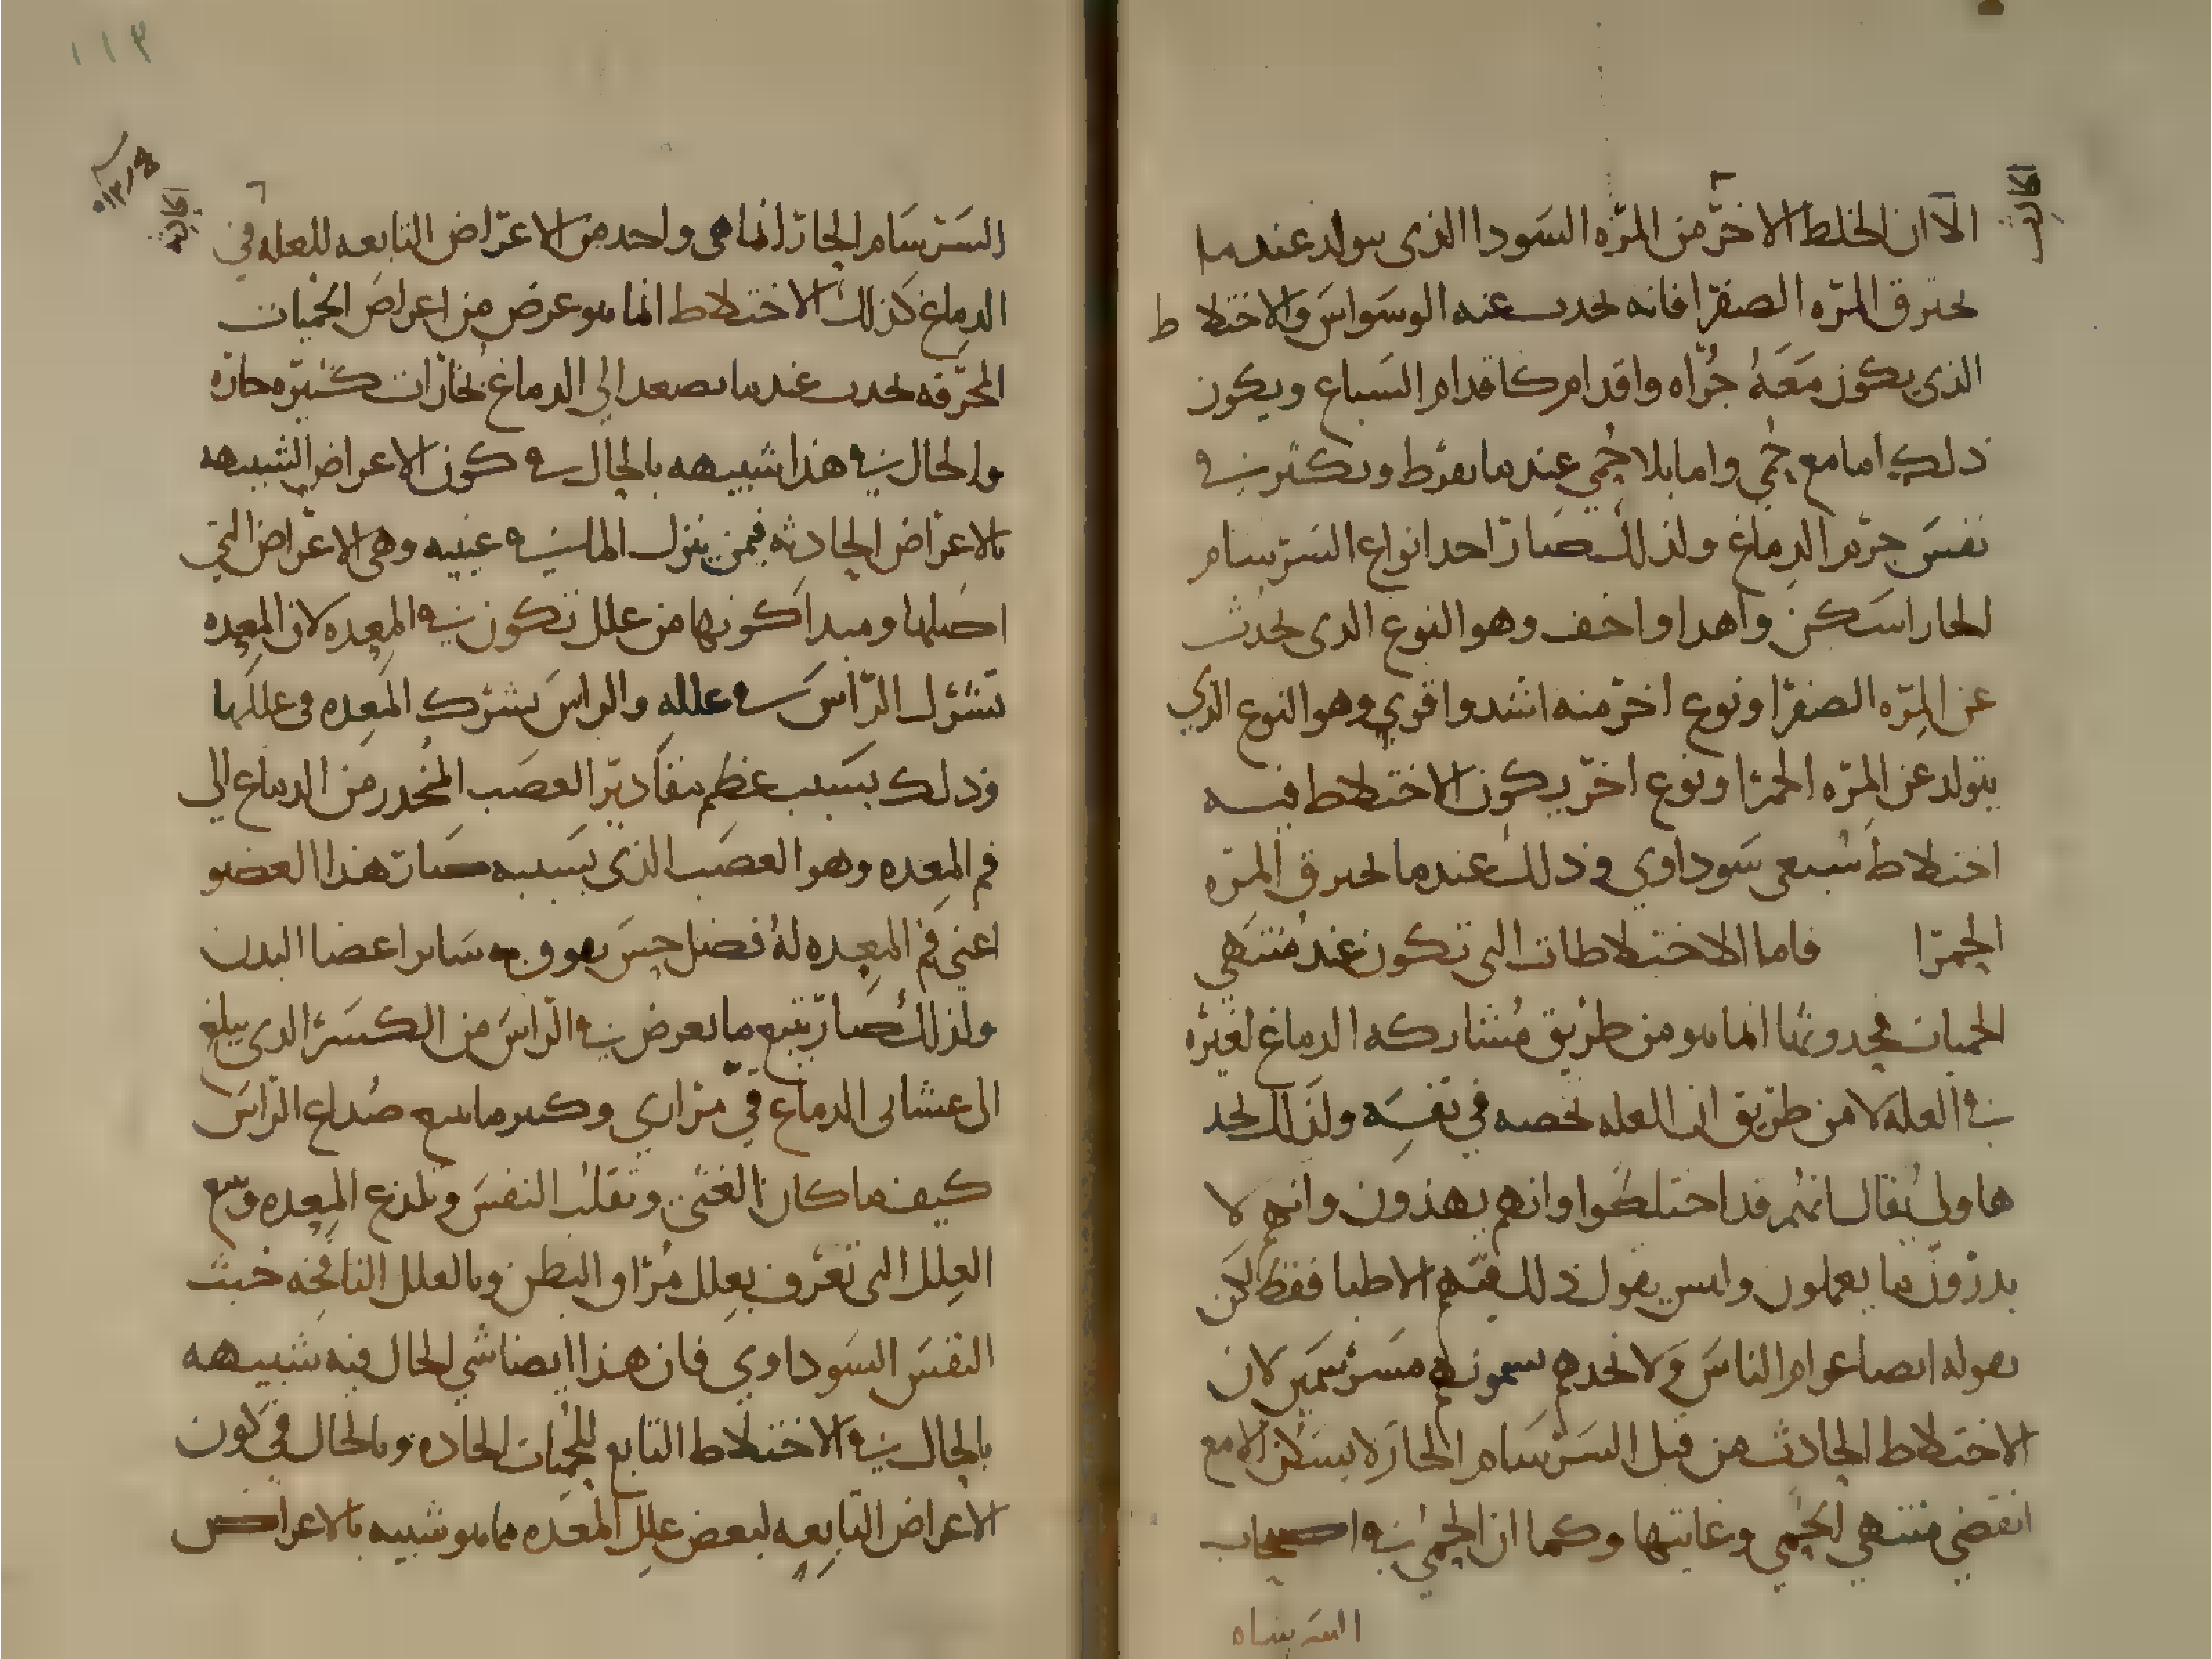 الا ان الخلط الاخر من المرّه السَودا الذى سولد عندما
يحترق المرّه الصفرا فانه يحدث عنه الوسَواسَ والاختلاط
الذى يكون مَعَهُ جُرّاه واقدام كاقدام السَباع ويكون
ذلك اما مع حُمي واما بلا حُمي عندما يفرط ويكثر في
نفسَ جرم الدماغ ولذلك صَارَ احد انواع السَرسام
الحار اسَكن واهدا واخف وهو النوع الذى يحدث
عن المِرّه الصفرا ونوع اخر منه اشد واقوي وهو النوع الذي
يتولد عن المرّه الحمرا ونوع اخر يكون الاختلاط فيه
اختلاط سَبعى سَوداوي وذلك عندما يحترق المرّه
الحمرا فاما الاختلاطات التى تكون عند مُنتهَي
الحميات فحدوثها انما هو من طريق مُشاركه الدماغ لغيره
في العله لا من طريق ان العله تخصه في نفسَه ولذلك تجد
هاولى يُقال انهُم قد اختلطُوا وانهم يهذون وانهم لا
يدرون ما يعملون وليس يقول ذلك فيهم الاطبا فقط لكن
يقوله ايصا عوام الناسَ ولا نجدهم يسمونهم مسَرسَمين لان
الاختلاط الحادث من قبل السَرسَام الحارّ لا يسَكن الا مع
انقضي منتهي الحُمي وغايتها وكما ان الحمي في اصحاب
السَرسام
١١٣
السَرسَام الحارّ انما هى واحد من الاعرّاض التابعه للعله في
الدماغ كذلك الاختلاط انما هو عرض من اعراض الحُميات
المحرّقه يحدث عند ما يصعد الي الدماغ بخارات كثيره حارّه
والحال في هذا شبيهه بالحال في كون الاعراض الشبيهه
بالاعرّاض الحادثه فيمن ينزل الما في عينيه وهى الاعرّاض التي
اصَلها ومبدا كونها من علل تكون في المعِده لان المعِده
تشرك الرّاسَ في علله والراسَ يشرك المَعِده فى عللها
وذلك بسَبب عظم مقَادير العصَب المنحُدر من الدماغ الي
فم المعِده وهو العصَب الذى بسَببه صَار هذا العضو
اعني فم المعِده لهُ فضل حِسَ يفوق به سَاير اعضا البدن
ولذلك صَار يتبع ما يعرض في الرّاسَ من الكسَر الذى يبلغ
الى عشاى الدماغ قي مرّاري وكثير ما يتبع صُداع الرّاسَ
كيف ما كان الغثي وتقلب النفسَ وتلذع المِعده وتتبع
العِلل التى تعرف بعِلل مُرّاق البطن وبالعلل النافخه خبث
النفسَ السَوداوي فان هذا ايضا شي الحال فيه شبيهه
بالحال في الاختلاط التابع للحُميات الحاده وبالحال في كون
الاعراض التابعه لبعض علل المعَده مما هو شبيه بالاعراض